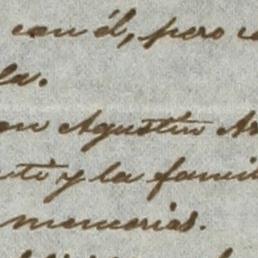 con él, pero c
la.
on Agustin Ar
nte y la famil
memorias.